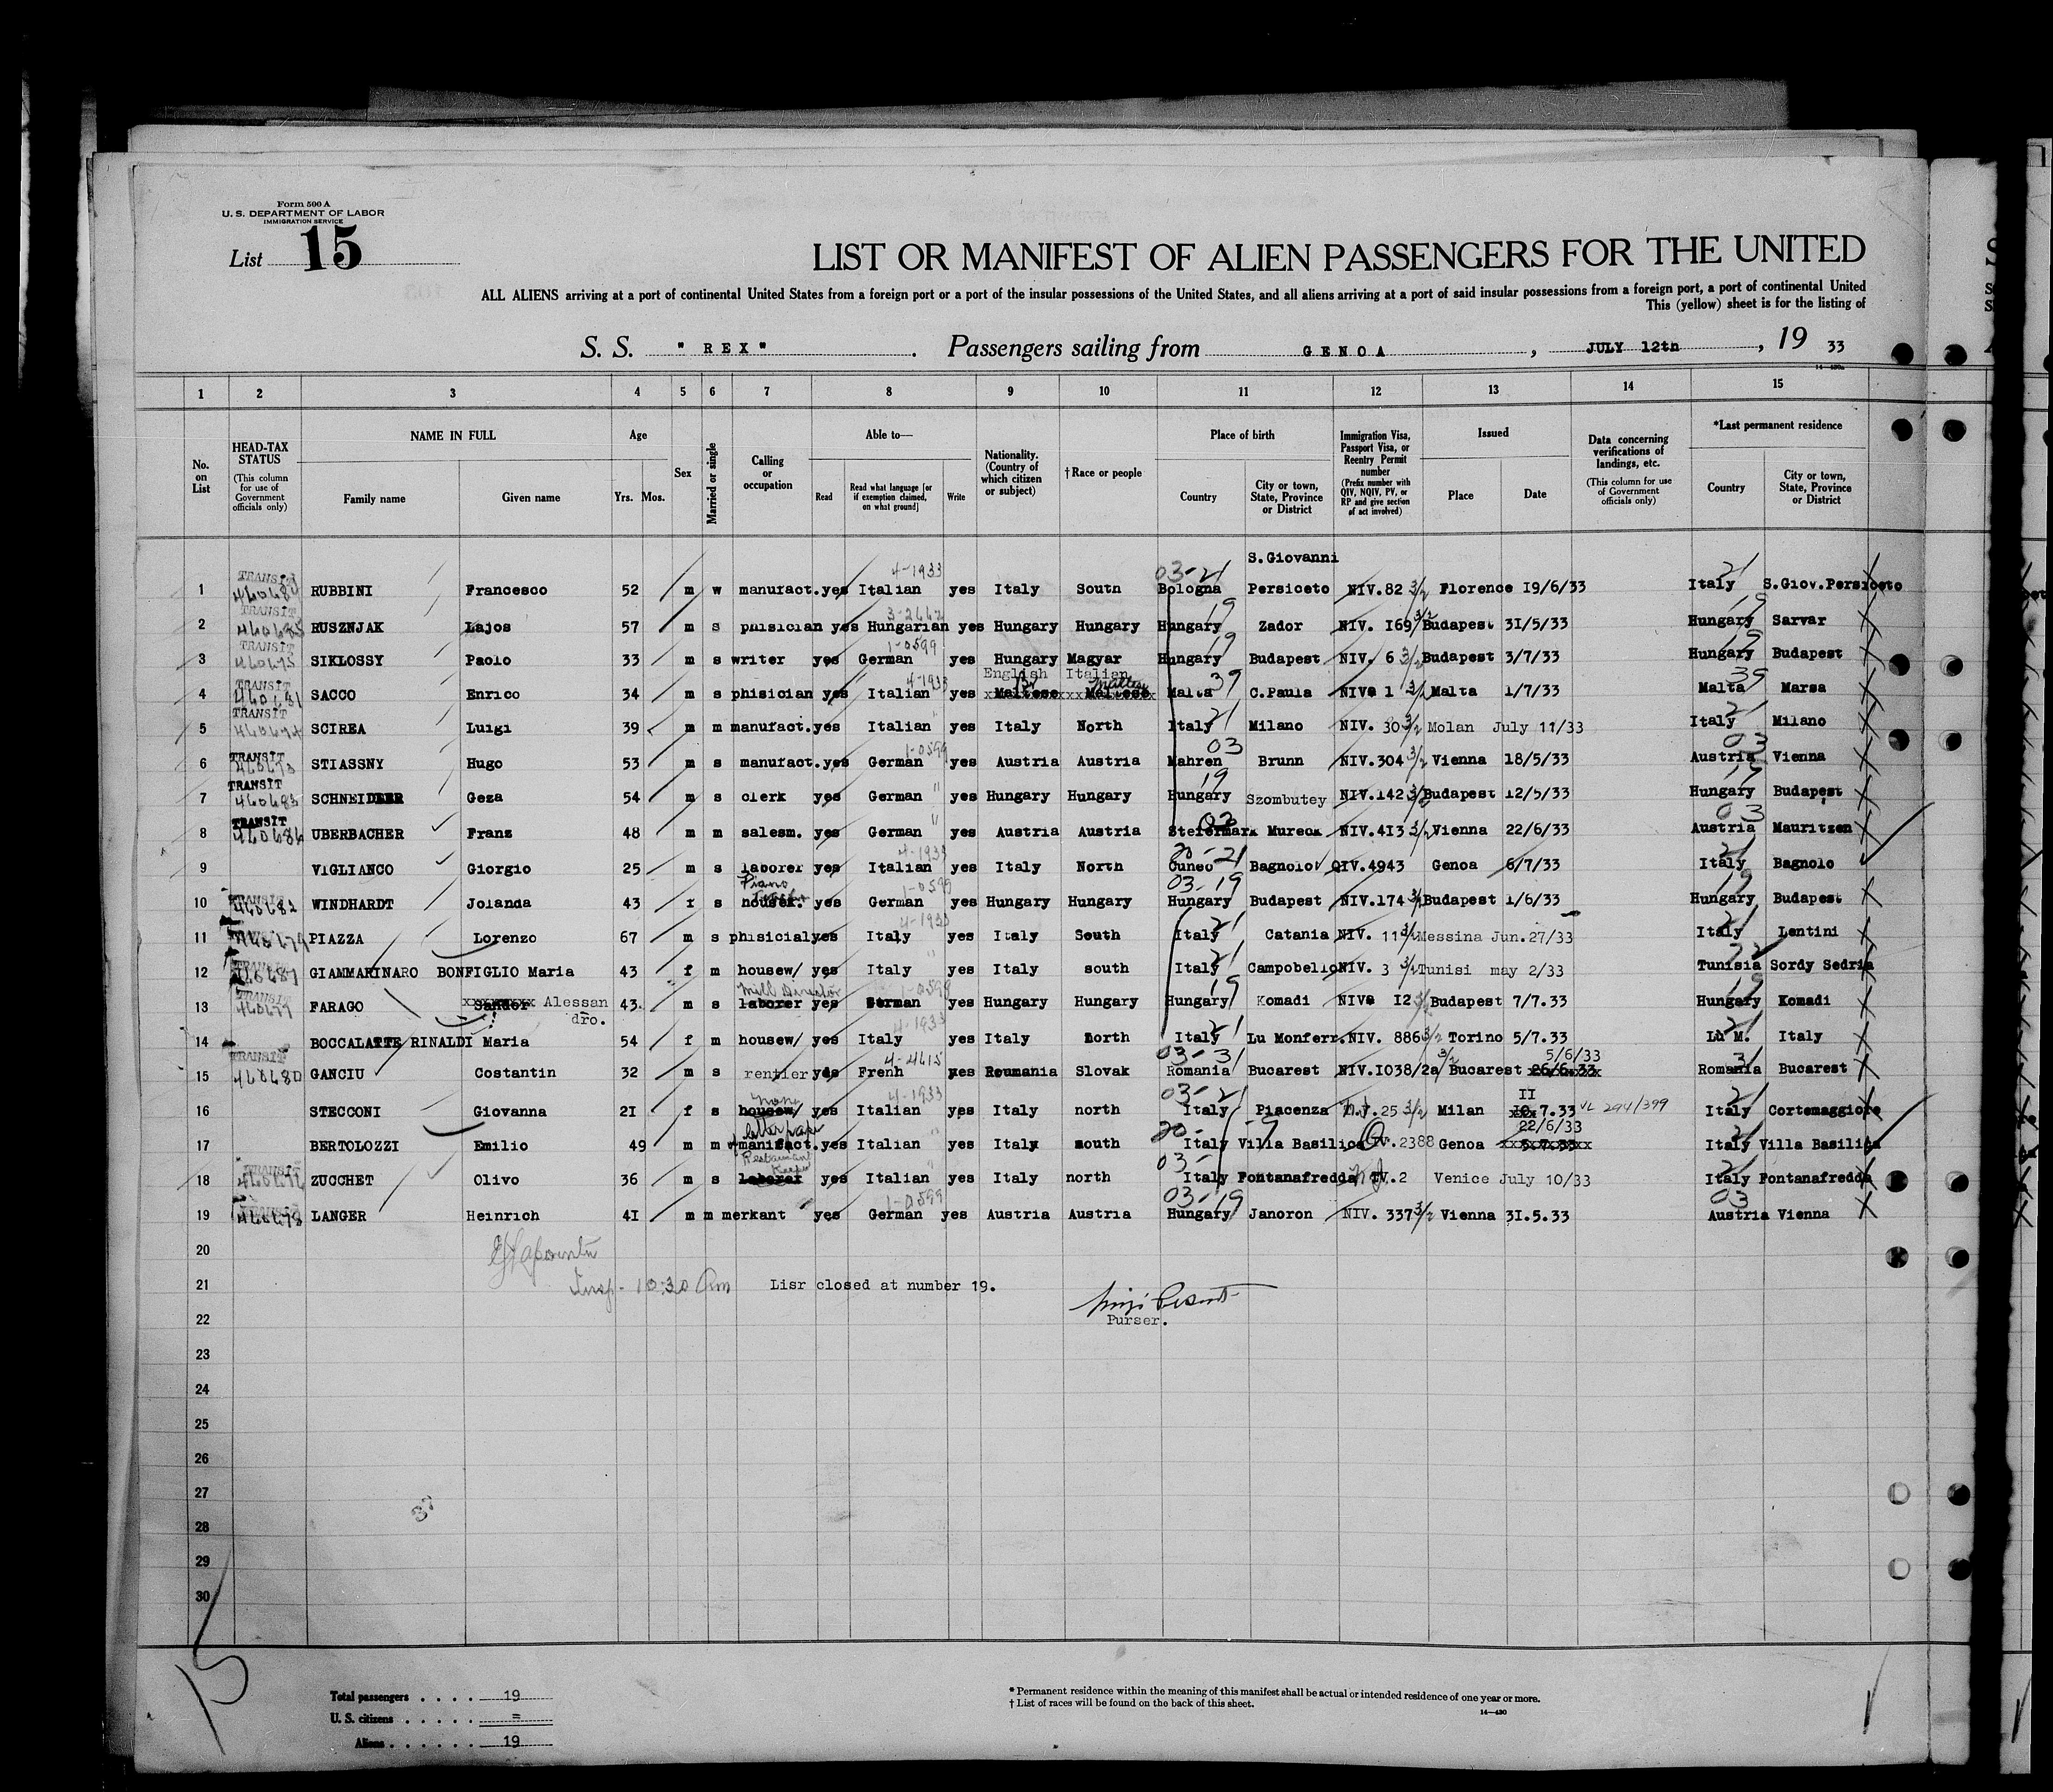 Form 500 A
U. S. DEPARTMENT OF LABOR
IMMIGRATION SERVICE
List 15
LIST OR MANIFEST OF ALIEN PASSENGERS FOR THE UNITED
ALL ALIENS arriving at a port of continental United States from a foreign port or a port of the insular possessions of the United States, and all aliens arriving at a port of said insular possessions from a foreign port, a port of continental United
This (yellow) sheet is for the listing of
S. S. " REX " . Passengers sailing from GENOA , JULY 12th , 19 33
1 2 3 4 5 6 7 8 9 10 11 12 13 14 15
No. on List
HEAD-TAX STATUS (This column for use of Government officials only)
NAME IN FULL Family name Given name
Age Yrs. Mos.
Sex
Married or single
Calling or occupation
Able to— Read Read what language [or if exemption claimed, on what ground] Write
Nationality. (Country of which citizen or subject)
†Race or people
Place of birth Country City or town, State, Province or District
Immigration Visa, Passport Visa, or Reentry Permit number (Prefix number with QIV, NQIV, PV, or RP and give section of act involved)
Issued Place Date
Data concerning verifications of landings, etc. (This column for use of Government officials only)
*Last permanent residence Country City or town, State, Province or District
S.Giovanni
1 TRANSIT RUBBINI Francesco 52 m w manufact. yes Italian 4-1933 yes Italy South 03-21 Bologna Persiceto NIV.82 3/2 Florence 19/6/33 Italy 21 S.Giov.Persiceto
2 TRANSIT 460685 RUSZNJAK Lajos 57 m s phisician yes Hungarian yes Hungary Hungary Hungary 19 Zador NIV. 169 3/2 Budapest 31/5/33 Hungary 19 Sarvar
3 TRANSIT 460675 SIKLOSSY Paolo 33 m s writer yes German 1-0599 yes Hungary Magyar Hungary 19 Budapest NIV. 6 3/2 Budapest 3/7/33 Hungary 19 Budapest
English Italian
4 TRANSIT 460681 SACCO Enrico 34 m s phisician yes Italian 4-1933 yes Maltese Maltese Malta 39 C.Paula NIV. 1 3/2 Malta 1/7/33 Malta 39 Marsa
5 TRANSIT 460674 SCIREA Luigi 39 m m manufact. yes Italian " yes Italy North Italy 21 Milano NIV. 30 3/2 Molan July 11/33 Italy 21 Milano
6 TRANSIT STIASSNY Hugo 53 m s manufact. yes German 1-0599 yes Austria Austria Mahren 03 Brunn NIV.304 3/2 Vienna 18/5/33 Austria 03 Vienna
7 TRANSIT 460683 SCHNEIDER Geza 54 m s clerk yes German " yes Hungary Hungary Hungary 19 Szombutey NIV.142 3/2 Budapest 12/5/33 Hungary 19 Budapest
8 TRANSIT 460686 UBERBACHER Franz 48 m m salesm. yes German " yes Austria Austria Steiermark 03 Mureck NIV.413 3/2 Vienna 22/6/33 Austria 03 Mauritzen
9 VIGLIANCO Giorgio 25 m s laborer yes Italian 4-1933 yes Italy North 20-21 Cuneo Bagnolo QIV.4943 Genoa 6/7/33 Italy 21 Bagnolo
10 TRANSIT 460682 WINDHARDT Jolanda 43 f s Piano Teacher housek. yes German 1-0599 yes Hungary Hungary 03-19 Hungary Budapest NIV.174 3/2 Budapest 1/6/33 Hungary 19 Budapest
11 PIAZZA Lorenzo 67 m s phisicial yes Italy 4-1933 yes Italy South Italy 21 Catania NIV. 11 3/2 Messina Jun.27/33 Italy 21 Lentini
12 TRANSIT GIAMMARINARO BONFIGLIO Maria 43 f m housew/ yes Italy " yes Italy south Italy 21 Campobello NIV. 3 3/2 Tunisi may 2/33 Tunisia Sordy Sedria
13 TRANSIT 460677 FARAGO Sandor Alessan dro. 43 m s Mill Director laborer yes German 1-0599 yes Hungary Hungary Hungary 19 Komadi NIV. 12 3/2 Budapest 7/7.33 Hungary 19 Komadi
14 BOCCALATTE RINALDI Maria 54 f m housew/ yes Italy 4-1933 yes Italy north Italy 21 Lu Monferr. NIV. 886 3/2 Torino 5/7.33 Lu M. 21 Italy
15 TRANSIT 460680 GANCIU Costantin 32 m s rentier yes Frenh 4-4615 yes Roumania Slovak 03-31 Romania Bucarest NIV.1038/2a 3/2 Bucarest 5/6/33 26/6.33 Romania 31 Bucarest
16 STECCONI Giovanna 21 f s none housew/ yes Italian 4-1933 yes Italy north 03-21 Italy Piacenza 25 3/2 Milan II 10.7.33 VL 294/399 Italy 21 Cortemaggiore
17 BERTOLOZZI Emilio 49 m m manifact. yes Italian " yes Italy south Italy Villa Basilica QIV.2388 Genoa 22/6/33 Italy 21 Villa Basilica
18 TRANSIT ZUCCHET Olivo 36 m s Restaurant Keeper laborer yes Italian " yes Italy north Italy Fontanafredda IV.2 Venice July 10/33 Italy 21 Fontanafredda
19 460678 LANGER Heinrich 41 m m merkant yes German 1-0599 yes Austria Austria 03-19 Hungary Janoron NIV. 337 3/2 Vienna 31.5.33 Austria 03 Vienna
20
21 Insp- 10:30 Am Lisr closed at number 19.
22 Purser.
23
24
25
26
27
28
29
30
37
15
Total passengers . . . . 19
U. S. citizens . . . . . =
Aliens . . . . . . 19
* Permanent residence within the meaning of this manifest shall be actual or intended residence of one year or more.
† List of races will be found on the back of this sheet.
14—430